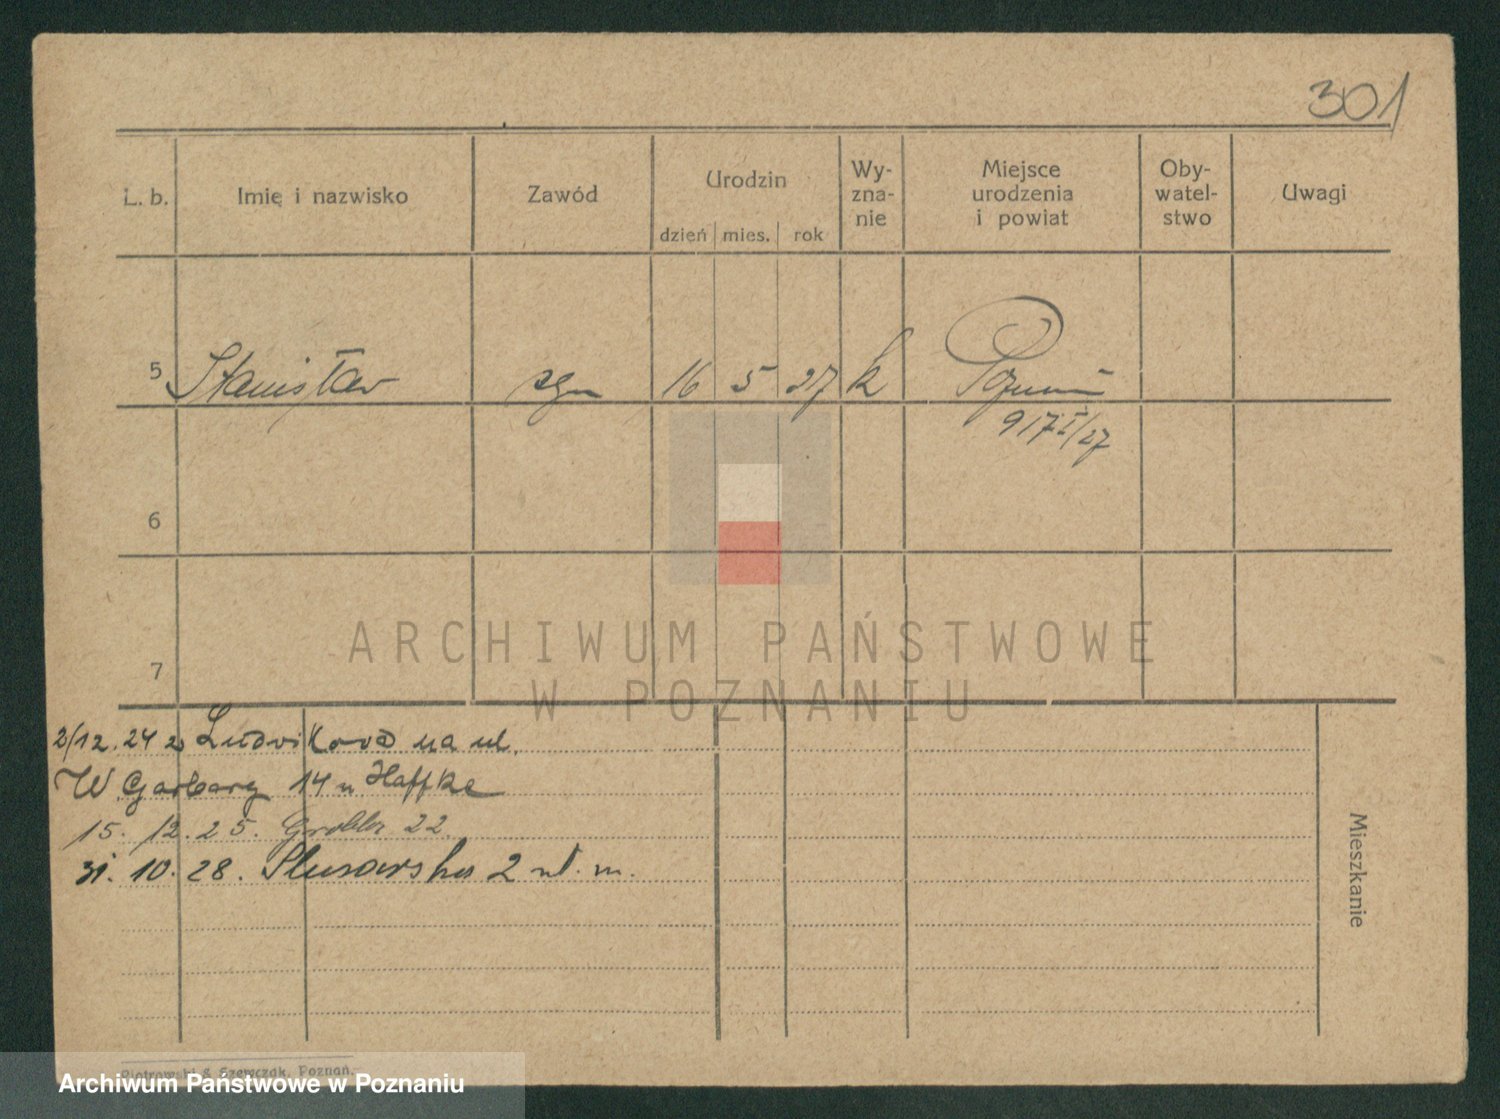 301
L. b. Imię i nazwisko Zawód Urodzin dzień mies. rok Wy-zna-nie Miejsce urodzenia i powiat Oby-watel-stwo Uwagi
5 Stanisław syn 16 5 27 k Poznań
917 I/27
6
7
ARCHIWUM PAŃSTWOWE
W POZNANIU
2/12.24 z Ludwikowa na ul.
W Garbary 14 u Haffke
15. 12. 25. Grobla 22
31. 10. 28. Ślusarska 2 m.
Mieszkanie
Piotrowski & Szewczak, Poznań.
Archiwum Państwowe w Poznaniu